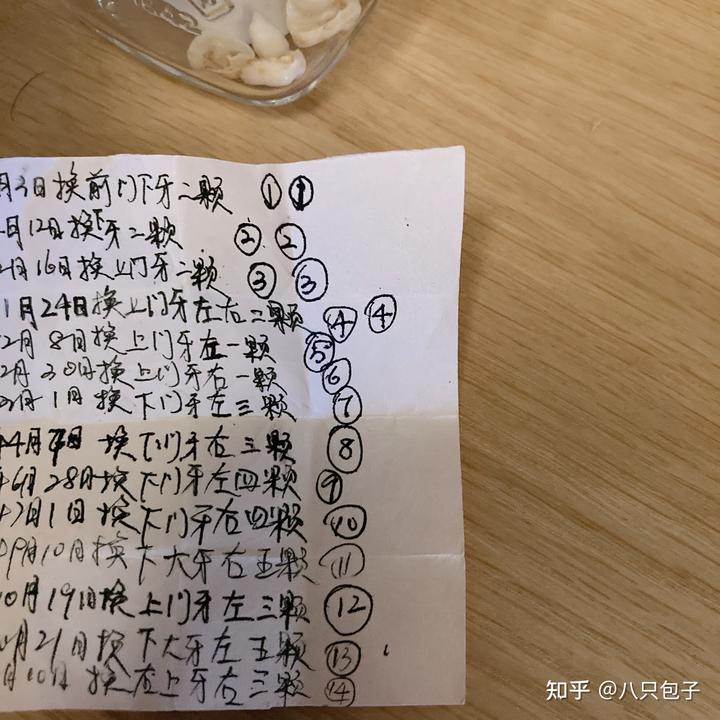 月3日换前门下牙二颗 ① ①
月12日换下牙二颗 ② ②
月16日换上门牙二颗 ③ ③
1月24日换上门牙左右二颗 ④ ④
2月8日换上门牙左一颗 ⑤
2月20日换上门牙右一颗 ⑥
月1日换下门牙左三颗 ⑦
4月日换下门牙右三颗 ⑧
6月28日换下门牙左四颗 ⑨
7月1日换下门牙右四颗 ⑩
9月10日换下大牙右五颗 ⑪
10月19日换上门牙左三颗 ⑫
月21日换下大牙左五颗 ⑬
月10日换右上牙右三颗 ⑭
知乎 @八只包子